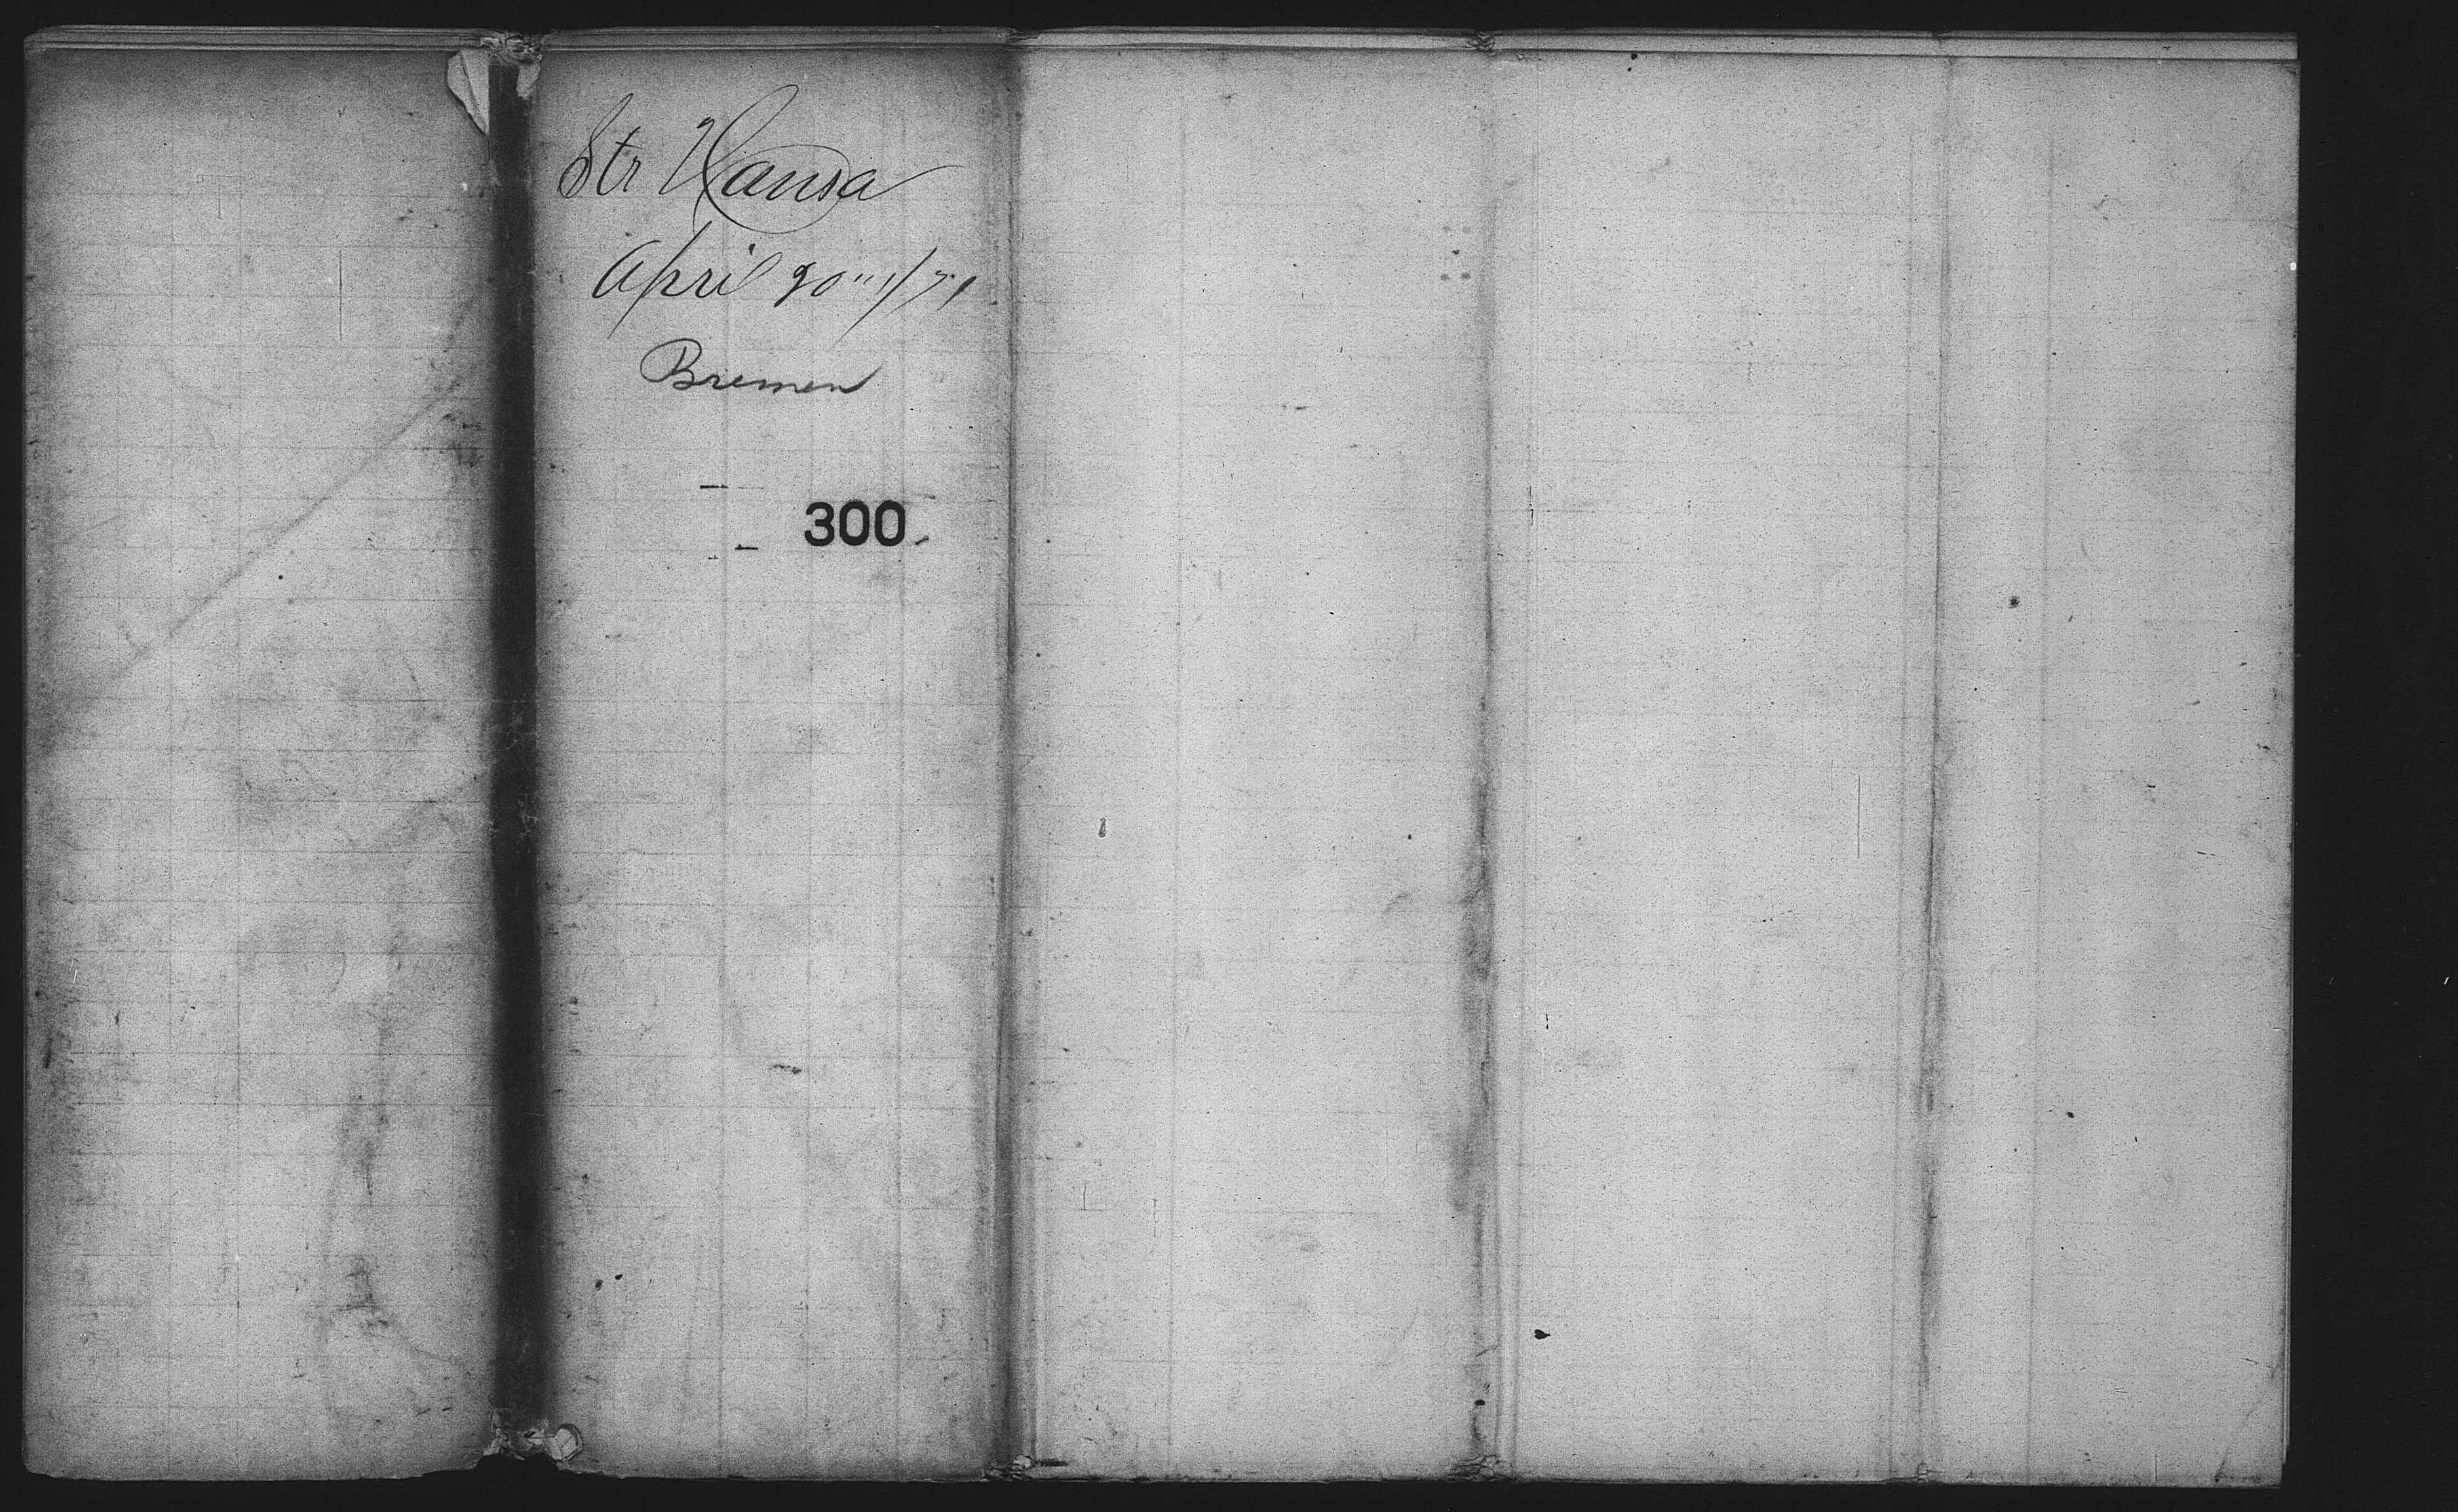 Str Hansa
April 20" 1/71
Bremen
300